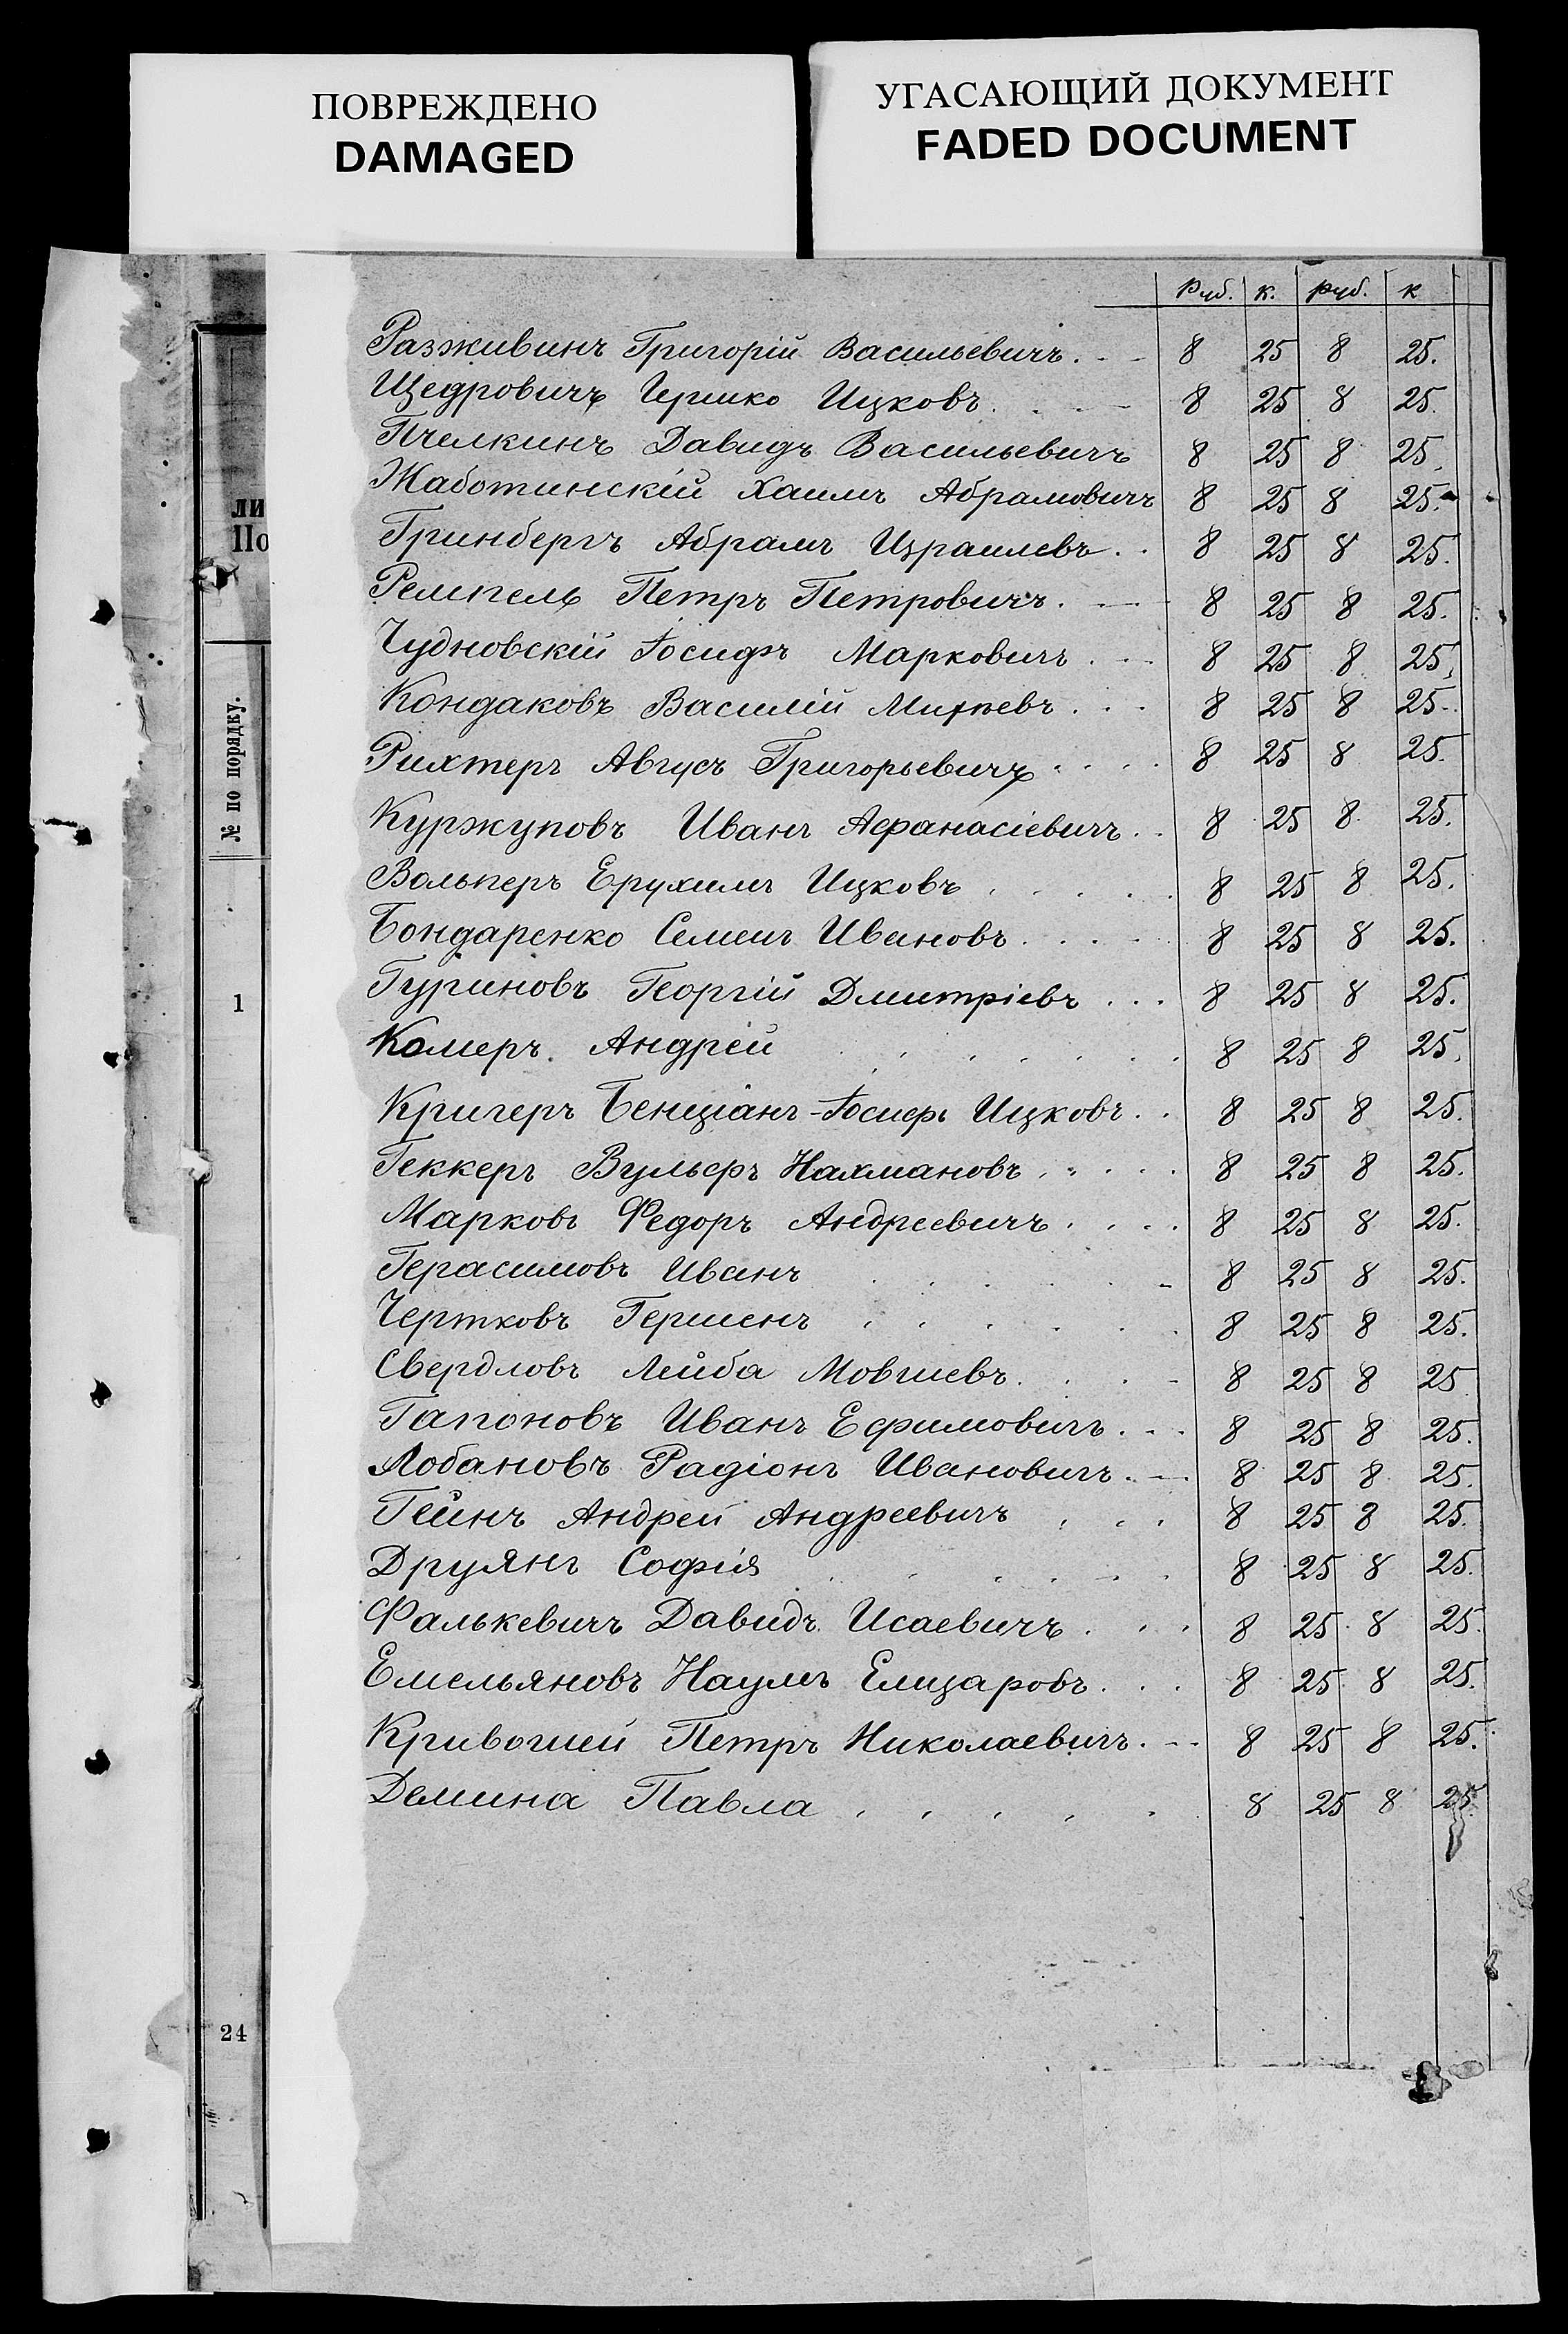 ПОВРЕЖДЕНО
DAMAGED
УГАСАЮЩИЙ ДОКУМЕНТ
FADED DOCUMENT
ли
По
№ по порядку.
1
24
Руб. к. руб. к
Разживинъ Григорій Васильевичъ. - - 8 25 8 25.
Щедровичъ Гершко Ицковъ. . - - 8 25 8 25.
Пчелкинъ Давидъ Васильевичъ 8 25 8 25.
Жаботинскій Хаимъ Абрамовичъ 8 25 8 25.
Гринбергъ Абрамъ Израилевъ. . 8 25 8 25.
Ремпель Петръ Петровичъ. - - 8 25 8 25.
Чудновскій Іосифъ Марковичъ . - - 8 25 8 25.
Кондаковъ Василій 8 25 8 25.
Рихтеръ Августъ Григорьевичъ . . . . 8 25 8 25.
Куржуповъ Иванъ Афанасіевичъ. . 8 25 8 25.
Вольперъ Ерухимъ Ицковъ . . . . . 8 25 8 25.
Бондаренко Семенъ Ивановъ. . . . 8 25 8 25.
Гуриновъ Георгій Дмитріевъ . . . 8 25 8 25.
Комеръ. Андрей . . . . . . 8 25 8 25.
Кригеръ Бенціанъ-Іосифъ Ицковъ. . 8 25 8 25.
Геккеръ Вульфъ Нахмановъ . . . . 8 25 8 25.
Марковъ Федоръ Андреевичъ . . . . 8 25 8 25.
Герасимовъ Иванъ . . . . . - 8 25 8 25.
Чертковъ Гершенъ . . . . . . 8 25 8 25.
Свердловъ Лейба Мовшевъ. . . - 8 25 8 25
Гапоновъ Иванъ Ефимовичъ. . . 8 25 8 25.
Лобановъ Радіонъ Ивановичъ. - - 8 25 8 25.
Гейнъ Андрей Андреевичъ . . . 8 25 8 25.
Друянъ Софія . . . . . . 8 25 8 25.
Фалькевичъ Давидъ Исаевичъ . . . 8 25 8 25.
Емельяновъ Наумъ Елизаровъ. . . 8 25 8 25.
Кривошей Петръ Николаевичъ. - - 8 25 8 25.
Демина Павла . . . . . 8 25 8 25.